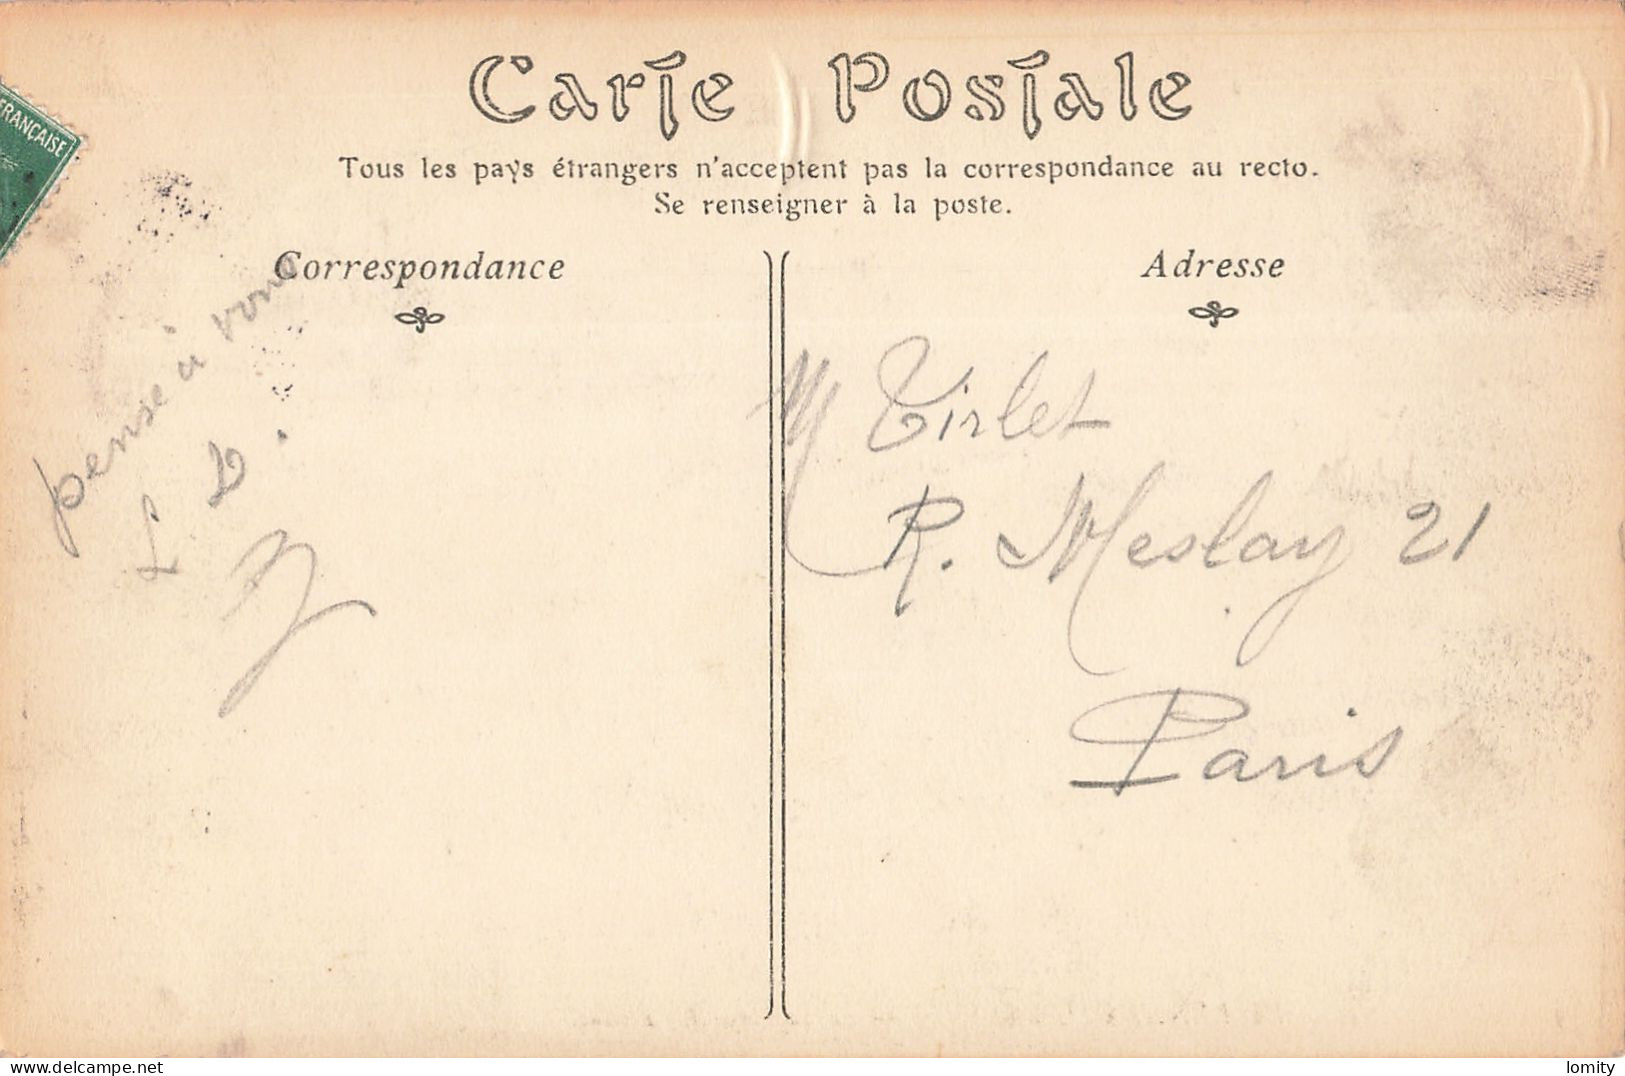 FRANÇAISE
Carte Postale
Tous les pays étrangers n'acceptent pas la correspondance au recto.
Se renseigner à la poste.
Correspondance
pense à vous
L D.
Adresse
M Tirlet
R. Meslay 21
Paris
lomity